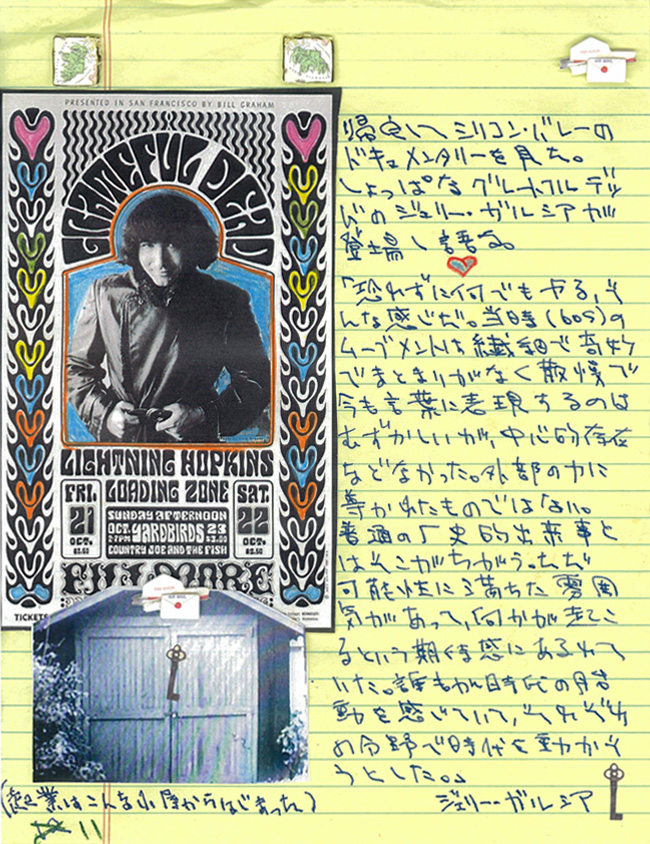 PRESENTED IN SAN FRANCISCO BY BILL GRAHAM
GRATEFUL DEAD
LIGHTNING HOPKINS
LOADING ZONE
FRI.
21
OCT.
$2.50
SUNDAY AFTERNOON
OCT. YARDBIRDS 23
2-7PM $3.00
COUNTRY JOE AND THE FISH
SAT.
22
OCT.
$2.50
FILLMORE
TICKETS
帰宅してシリコン・バレーの
ドキュメンタリーを見た。
しょっぱなグレートフルデッ
ドのジェリー・ガルシアが
登場し語る。
「恐れずに何でもやる、そ
んな感じだ。当時(60S)の
ムーブメントは繊細で奇妙
でまとまりがなく散慢で
今も言葉に表現するのは
むずかしいが、中心的存在
などなかった。外部の力に
導かれたものではない。
普通の厂史的出来事と
はそこがちがう。ただ
可能性に満ちた雰囲
気があって、「何かが起こ
るという期待感にあふれて
いた。誰もが時代の鼓
動を感じていて、それぞれ
の分野で時代を動かそ
うとした。」
ジェリー・ガルシア
(起業はこんな小屋からはじまった)
11